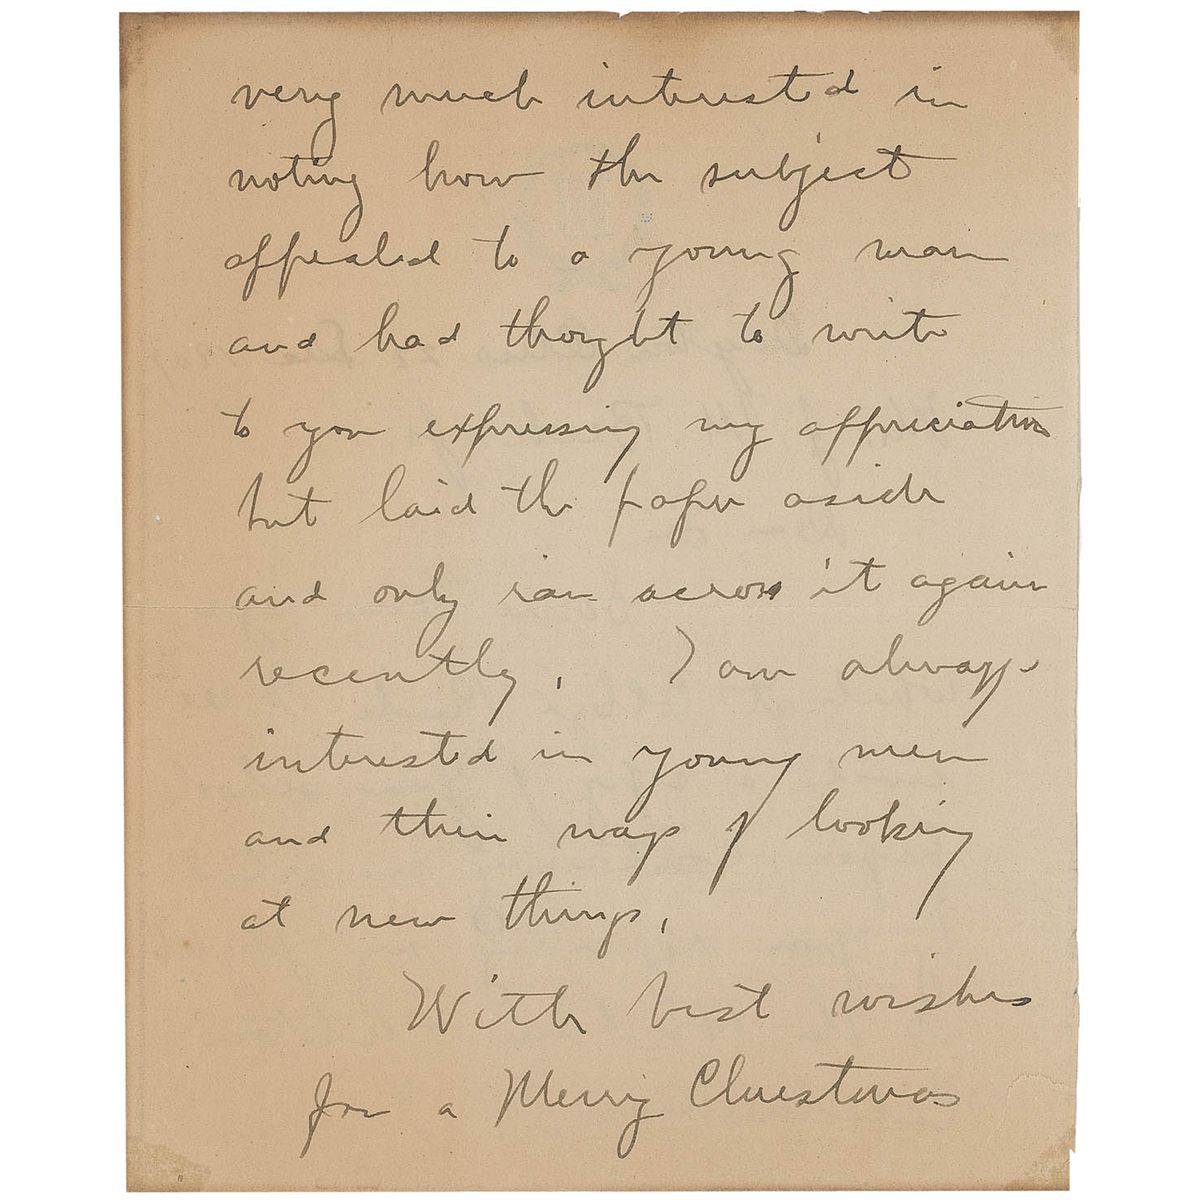 very much interested in
noting how the subject
appealed to a young man
and had thought to write
to you expressing my appreciation
but laid the paper aside
and only ran across it again
recently. I am always
interested in young men
and their ways of looking
at new things.
With best wishes
for a Merry Christmas